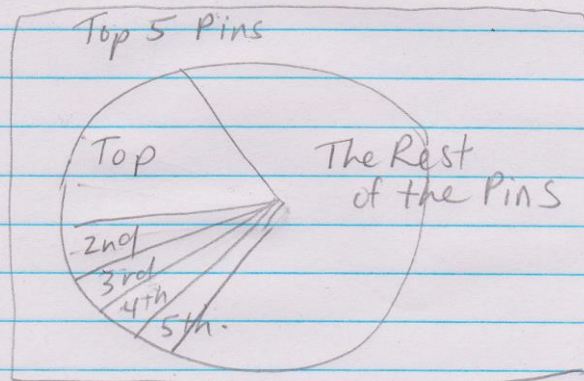 Top 5 Pins
Top
The Rest
of the Pins
2nd
3rd
4th
5th.